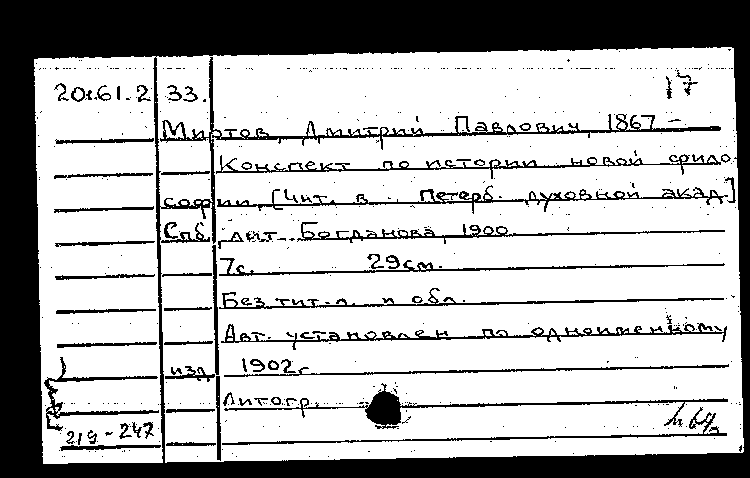 20.61.2 33. 17
Миртов, Дмитрий Павлович, 1867 -
Конспект по истории новой фило
софии, [Чит. в Петерб. духовной акад.]
Спб, лит. Богданова, 1900.
7с. 29см.
Без тит. л. и обл.
Авт. установлен по одноименному
изд. 1902г
Литогр.
219-247